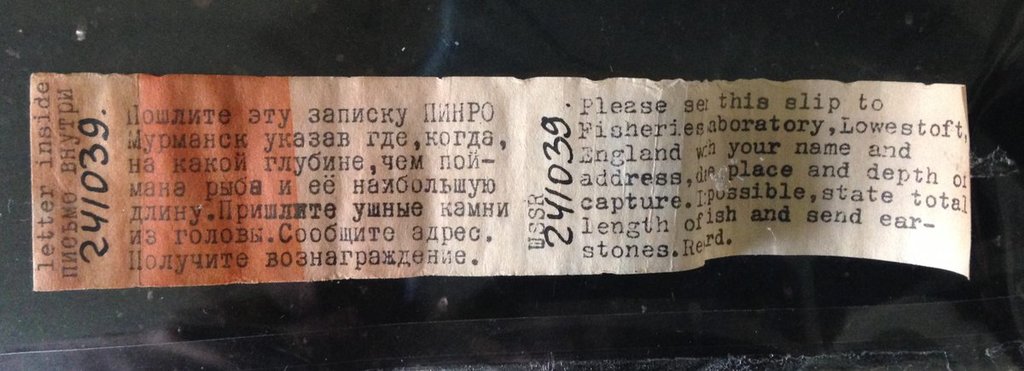 letter inside
письмо внутри
241039.
Пошлите эту записку ПИНРО
Мурманск указав где,когда,
на какой глубине,чем пой-
мана рыба и её наибольшую
длину.Пришлите ушные камни
из головы.Сообщите адрес.
Получите вознаграждение.
USSR
241039.
Please this slip to
Fisheries aboratory,Lowestoft,
England your name and
address, place and depth of
capture. possible,state total
length of ish and send ear-
stones.